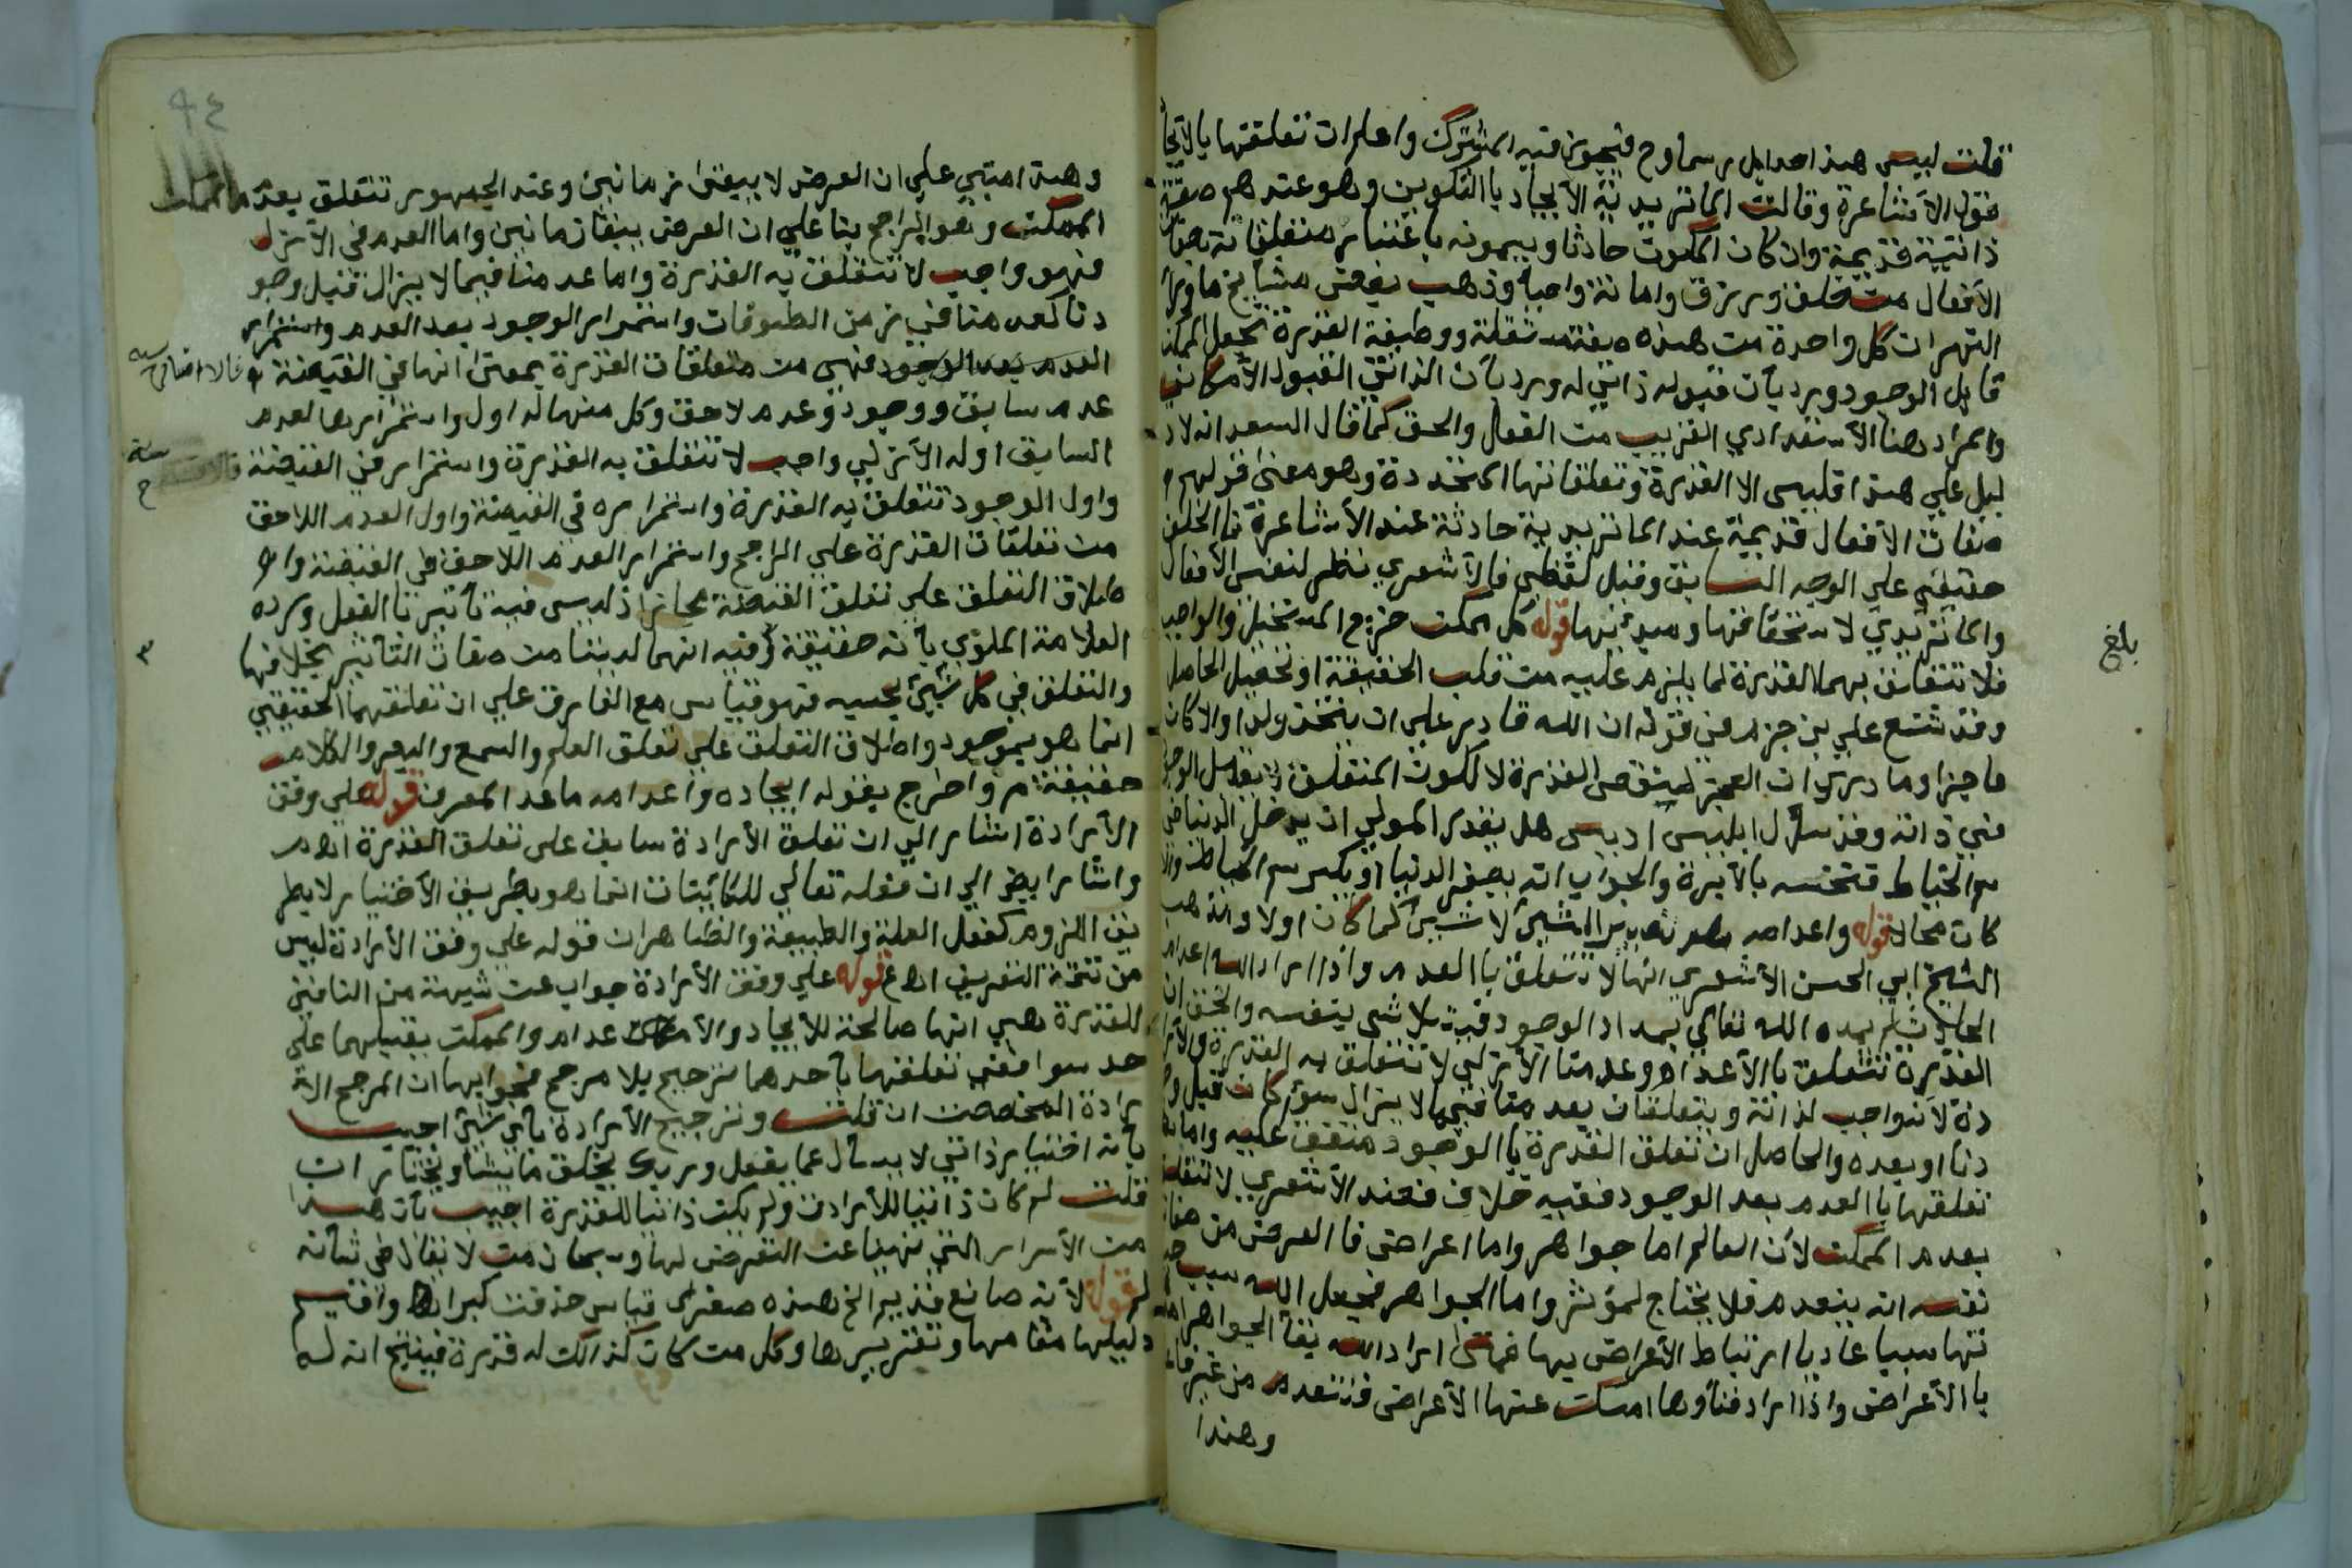 قلت ليس هذا حدا بل رسما وح فيجوز فيه المشترك واعلم ان تعلقها بالايجا
قول الاشاعرة وقالت الماتريدية الايجاد با التكوين وهو عندهم صفة
ذاتية قديمة وان كان المكون حادثا ويسمونه باعتبار متعلقاته صفات
الافعال من خلق ورزق واماتة واحيا وذهب بعض مشايخ ماورا
النهر ان كل واحدة من هذه صفة مستقلة ووظيفة القدرة تجعل الممكن
قابل الوجود ويرد بأن قبوله ذاتي له ورد بأن الذاتي القبول الامكاني
والمراد هنا الاستعدادي القريب من الفعل والحق كما قال السعد انه لا د
ليل علي هذا فليس الا القدرة وتعلقاتها المتجددة وهو معنى قولهم
صفات الافعال قديمة عند الماتريدية حادثة عند الأشاعرة فا الخلف
حقيقي علي الوجه السابق وقيل لفظي فالأشعري نظر لنفس الأفعال
والماتريدي لاستحقاقها ومبدئها قوله كل ممكن خرج المستحيل والواجب
فلا تتعلق بهما القدرة لما يلزم عليه من قلب الحقيقة او تحصيل الحاصل
وقد شنع علي بن حزم في قوله ان الله قادر علي ان يتخذ ولدا والا كان
عاجزا وما دري ان العجز لنقص القدرة لا لكون المتعلق لا يقبل الوجو
في ذاته وقد سأل ابليس ادريس هل يقدر المولي ان يدخل الدنيا في
سم الخياط فنخسه بالأبرة والجواب انه يصغر الدنيا او يكبر سم الخياط والا
كان محالا قوله واعدامه هو تصيير الشيئ لا شيئ كما كان اولا وذهب
الشيخ ابي الحسن الأشعري انها لا تتعلق با العدم واذا اراد الله اعدام
الحادث لم يمده الله تعالي بمداد الوجود فيتلاشى بنفسه والحق ان
القدرة تتعلق با الأعدام وعدمنا الأزلي لا تتعلق به القدرة والأرا
دة لانه واجب لذاته ويتعلقان بعدمنا فيما لا يزال سواء كان قبل وجو
دنا او بعده والحاصل ان تعلق القدرة با الوجود متفق عليه واما
تعلقها با العدم بعد الوجود ففيه خلاف فعند الأشعري لا تتعلق
بعدم الممكن لأن العالم اما جواهر واما اعراض فا العرض من صفات
نفسه انه ينعدم فلا يحتاج لمؤثر واما الجواهر فجعل الله سبب
تها سببا عاديا ارتباط الأعراض بها فمتى اراد الله بقأ الجواهر امد
با الأعراض واذا اراد فنأوها امسك عنها الأعراض فتنعدم من غير فاعل
وهذا
بلغ
٩٤
وهذا مبني علي ان العرض لا يبقى زمانين وعند الجمهور تتعلق بعدم الممكن
الممكن وهو الراجح بنا علي ان العرض يبقا زمانين واما العدم في الأزل
فهو واجب لا تتعلق به القدرة واما عدمنا فيما لا يزال قبل وجو
دنا كعدمنا في زمن الطوفان واستمرار الوجود بعد العدم واستمرار
العدم بعد الوجود فهي من متعلقات القدرة بمعنى انها في القبضة
عدم سابق ووجود وعدم لاحق وكل منها له اول واستمرار فالعدم
السابق اوله الأزلي واجب لا تتعلق به القدرة واستمراره في القبضة
واول الوجود تتعلق به القدرة واستمراره في القبضة واول العدم اللاحق
من تعلقات القدرة علي الراجح واستمرار العدم اللاحق في القبضة وا
طلاق التعلق علي تعلق القبضة مجازا ذ ليس فيه تأثير با الفعل ورده
العلامة الملوي بأنه حقيقة وفيه انهما ليستا من صفات التأثير بخلافها
والتعلق في كل شيئ بحسبه فهو قياس مع الفارق علي ان تعلقهما الحقيقي
انما هو بموجود واطلاق التعلق علي تعلق العلم والسمع والبصر والكلام
حقيقة واخرج بقوله ايجاده واعدامه ماعدا المعرف قوله علي وفق
الأرادة اشار الي ان تعلق الأرادة سابق على تعلق القدرة اهم
واشار ايضا الي ان فعله تعالي للكائنات انما هو بطريق الأختيار لا بطر
يق اللزوم كفعل العلة والطبيعة والظاهر ان قوله علي وفق الأرادة ليس
من تتمة التعريف اهع قوله علي وفق الأرادة جواب عن شبهة من النافين
للقدرة هي انها صالحة للأيجاد والأعدام والممكن يقبلهما علي
حد سوا ففي تعلقها بأحدهما ترجيح بلا مرجح فجوابها ان المرجح الا
رادة المخصصة ان قلت وترجيح الأرادة بأي شيئ اجيب
بأنه اختيار ذاتي لا يسأل عما يفعل وربك يخلق ما يشأ ويختار ان
قلت لم كان ذاتيا للأرادة ولم يكن ذاتيا للقدرة اجيب بأن هذا
من الأسرار التي نهينا عن التعرض لها وسبحان من لا يقال في شأنه
لم قوله لأنه صانع قدير الخ هذه صغرى قياس حذفت كبراه واقيم
دليلها مقامها وتقريرها وكل من كان كذالك له قدرة فينتج انه له